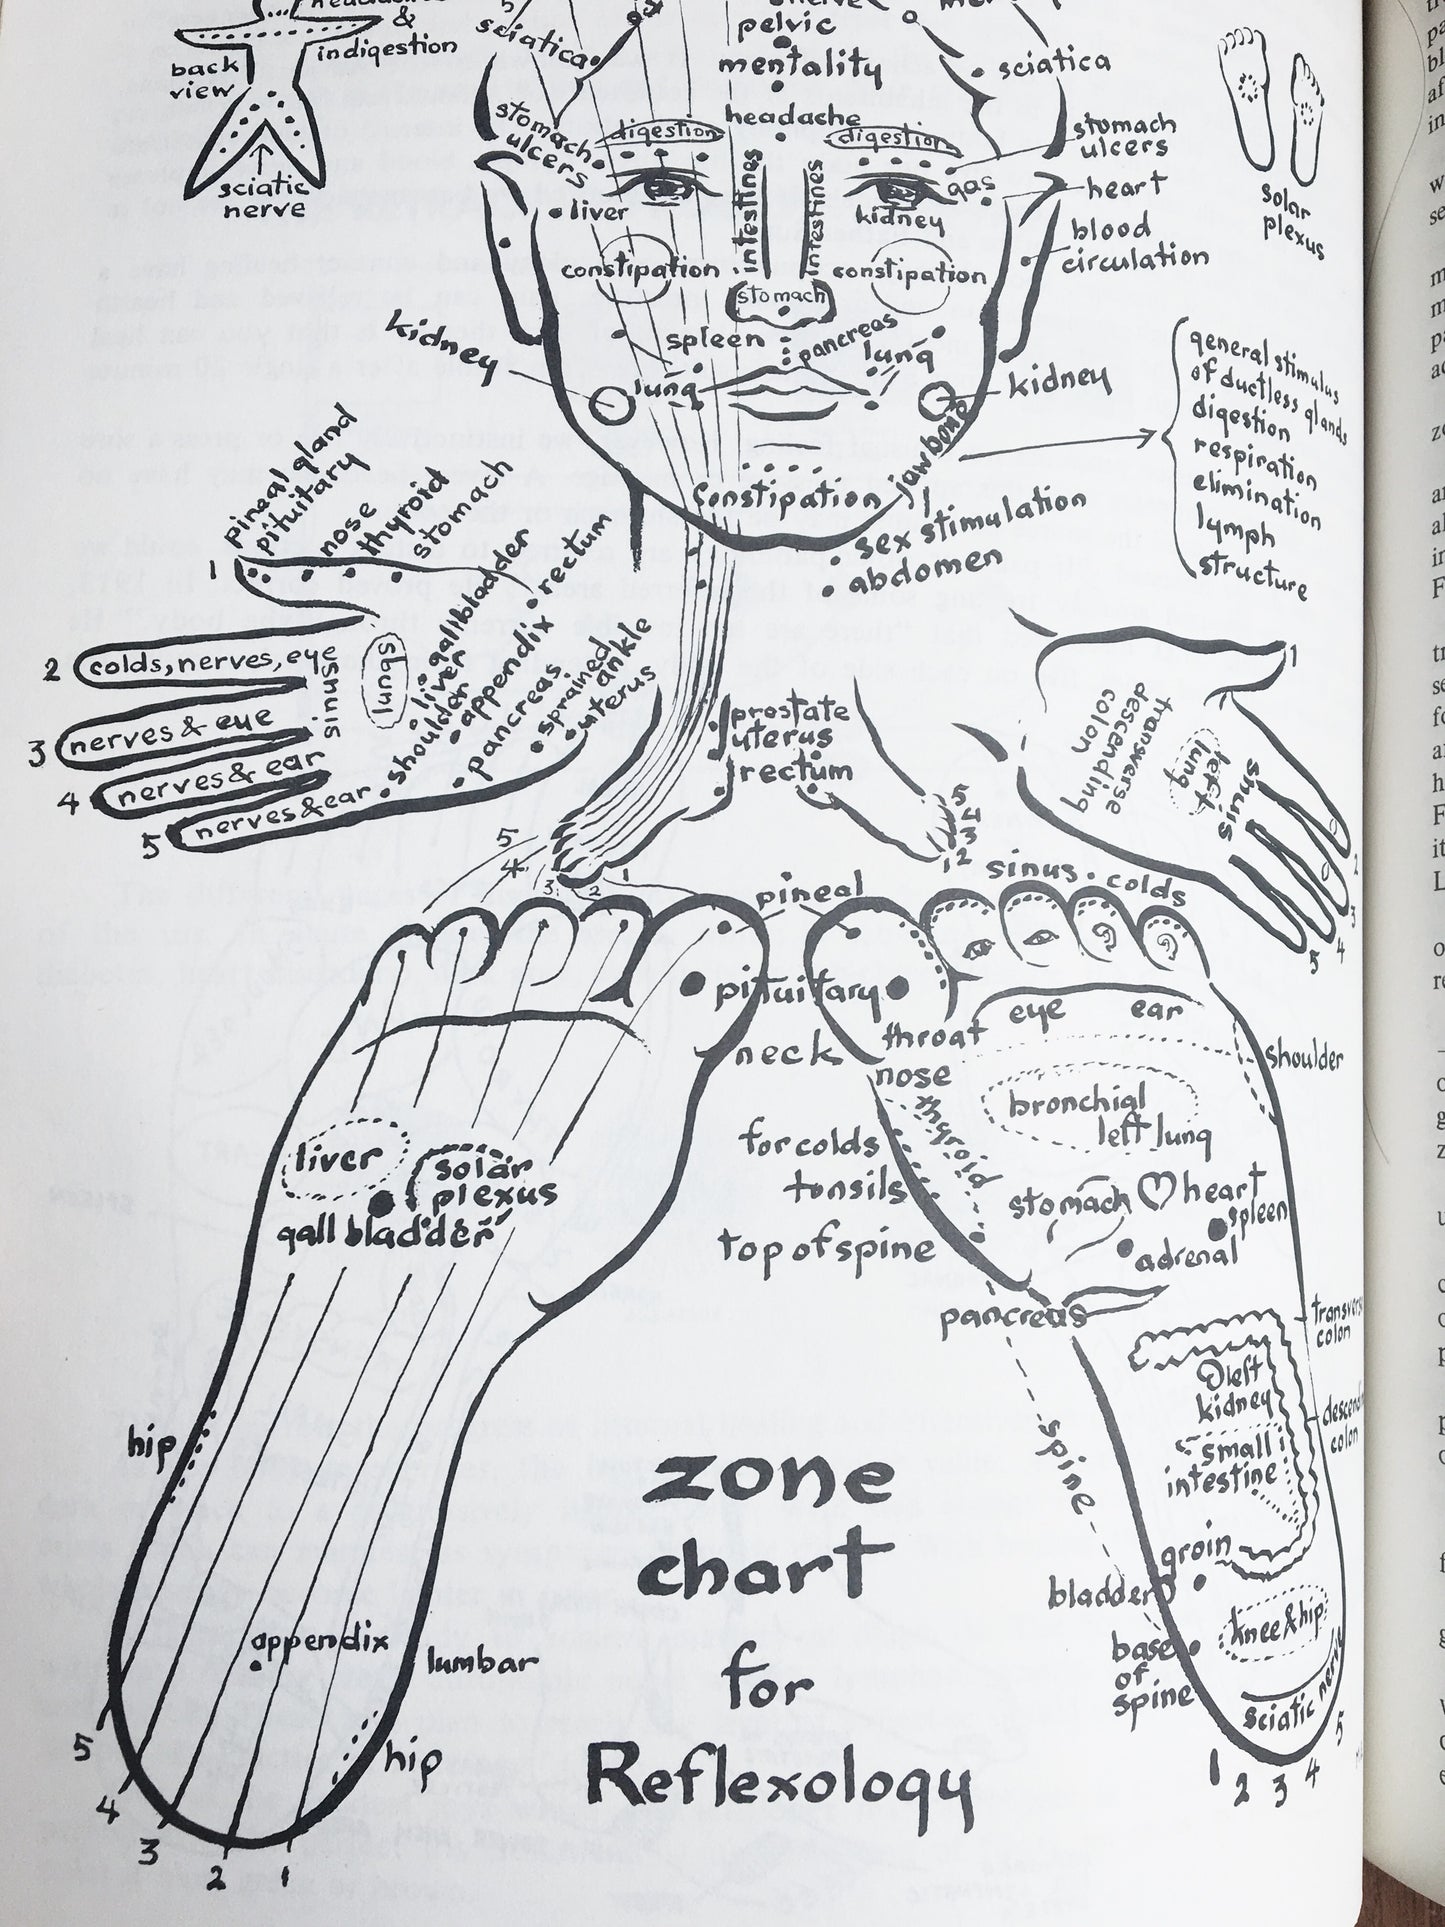 &
indigestion
back
view
sciatic
nerve
sciatica
pelvic
mentality
headache
digestion
digestion
stomach
ulcers
sciatica
stomach
ulcers
gas
heart
liver
kidney
blood
circulation
intestines
intestines
constipation
constipation
stomach
spleen
pancreas
lung
lung
kidney
kidney
jawbone
constipation
sex stimulation
abdomen
solar
plexus
general stimulus
of ductless glands
digestion
respiration
elimination
lymph
structure
pineal gland
pituitary
nose
thyroid
stomach
1
2 colds, nerves, eye
3 nerves & eye
4 nerves & ear
5 nerves & ear
sinus
lungs
gallbladder
liver
shoulder
rectum
appendix
pancreas
sprained
ankle
uterus
prostate
uterus
rectum
5
4
3
2
1
5
4
3
2
1
transverse
descending
colon
left
lung
sinus
1
2
3
4
5
sinus. colds
pineal
pituitary
neck
throat
nose
thyroid
eye ear
shoulder
bronchial
left lung
for colds
tonsils
top of spine
stomach
heart
spleen
adrenal
pancreas
liver
solar
plexus
gall bladder
spine
colon
left
kidney
small
intestine
colon
groin
bladder
knee & hip
base
of
spine
sciatic nerve
1 2 3 4 5
hip
appendix
lumbar
hip
5
4
3
2
1
zone
chart
for
Reflexology